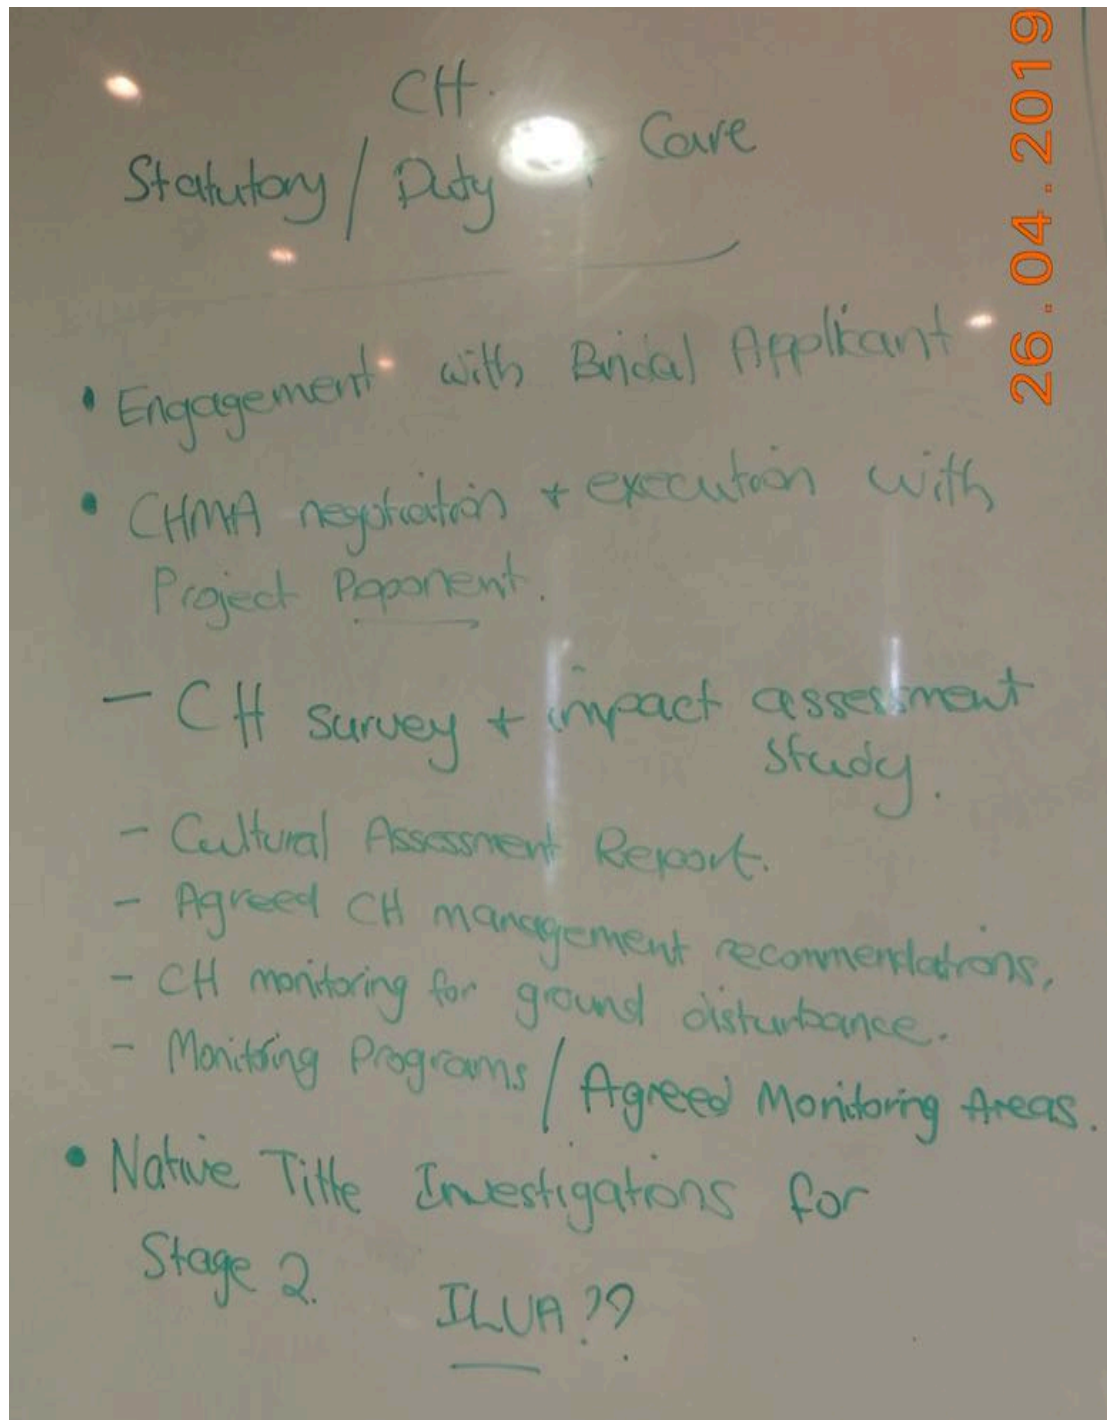 CH.
Statutory / Duty Care
• Engagement with Bindal Applicant
• CHMA negotiation + execution with
Project Poponent.
- CH survey + impact assessment
study.
- Cultural Assessment Report.
- Agreed CH management recommendations.
- CH monitoring for ground disturbance.
- Monitoring Programs / Agreed Monitoring Areas.
• Native Title Investigations for
Stage 2.
ILUA ??
26.04.2019